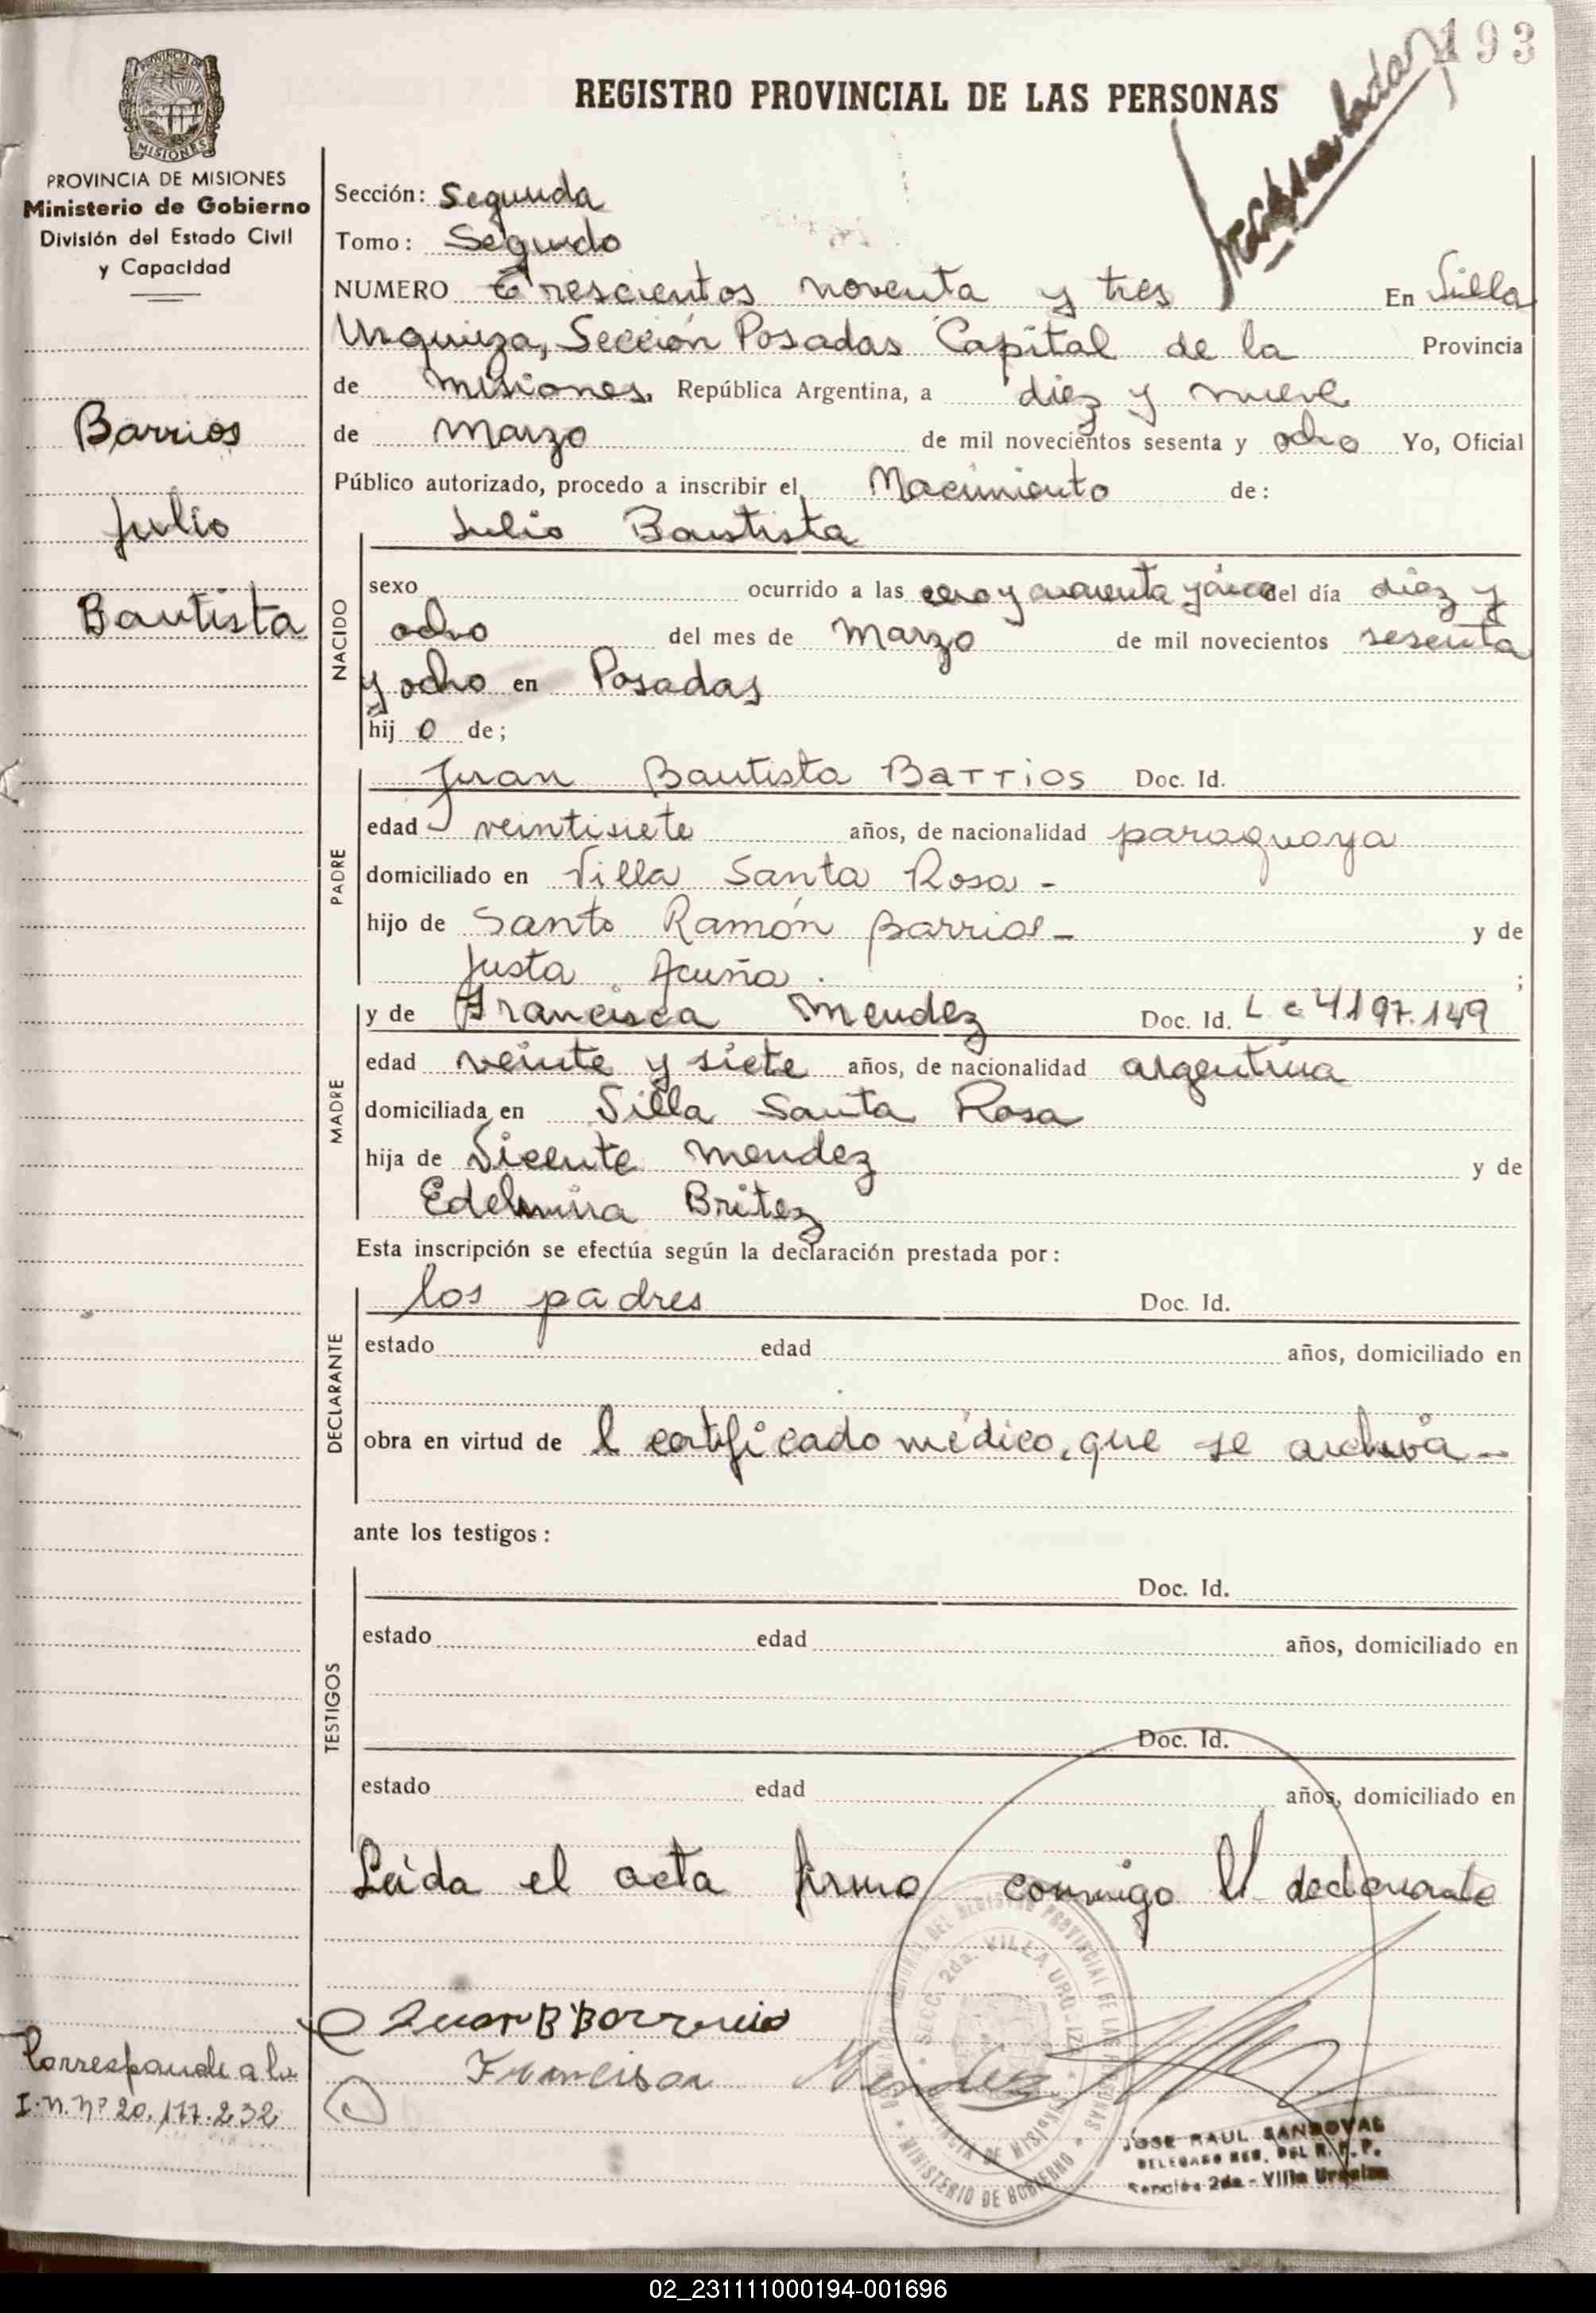 193
PROVINCIA DE
MISIONES
PROVINCIA DE MISIONES
Ministerio de Gobierno
División del Estado Civil
y Capacidad
Barrios
Julio
Bautista
Corresponde a la
I.N. Nº 20.177.232
REGISTRO PROVINCIAL DE LAS PERSONAS
Sección: Segunda
Tomo: Segundo
NUMERO Trescientos noventa y tres En Villa
Urquiza, Sección Posadas Capital de la Provincia
de Misiones. República Argentina, a diez y nueve
de Marzo de mil novecientos sesenta y ocho Yo, Oficial
Público autorizado, procedo a inscribir el Nacimiento de:
Julio Bautista
NACIDO
sexo ocurrido a las cero y cuarenta y cinco del día diez y
ocho del mes de Marzo de mil novecientos sesenta
y ocho en Posadas
hij o de;
PADRE
Juan Bautista Barrios Doc. Id.
edad veintisiete años, de nacionalidad paraguaya
domiciliado en Villa Santa Rosa -
hijo de Santo Ramón Barrios - y de
Justa Acuña. ;
MADRE
y de Francisca Mendez Doc. Id. L c 4.197.149
edad veinte y siete años, de nacionalidad argentina
domiciliada en Villa Santa Rosa
hija de Vicente Mendez y de
Edelmira Britez
Esta inscripción se efectúa según la declaración prestada por:
DECLARANTE
los padres Doc. Id.
estado edad años, domiciliado en
obra en virtud de l certificado médico, que se archiva -
ante los testigos:
TESTIGOS
Doc. Id.
estado edad años, domiciliado en
Doc. Id.
estado edad años, domiciliado en
Leída el acta firma conmigo el declarante
Juan B Barrios
Francisca Mendez
REGISTRO PROVINCIAL DE LAS PERSONAS
SECC. 2da. VILLA URQUIZA
PROVINCIA DE MISIONES
MINISTERIO DE GOBIERNO
JOSE RAUL SANDOVAL
DELEGADO REG. DEL R.P.P.
Sección 2da - Villa Urquiza
02_231111000194-001696